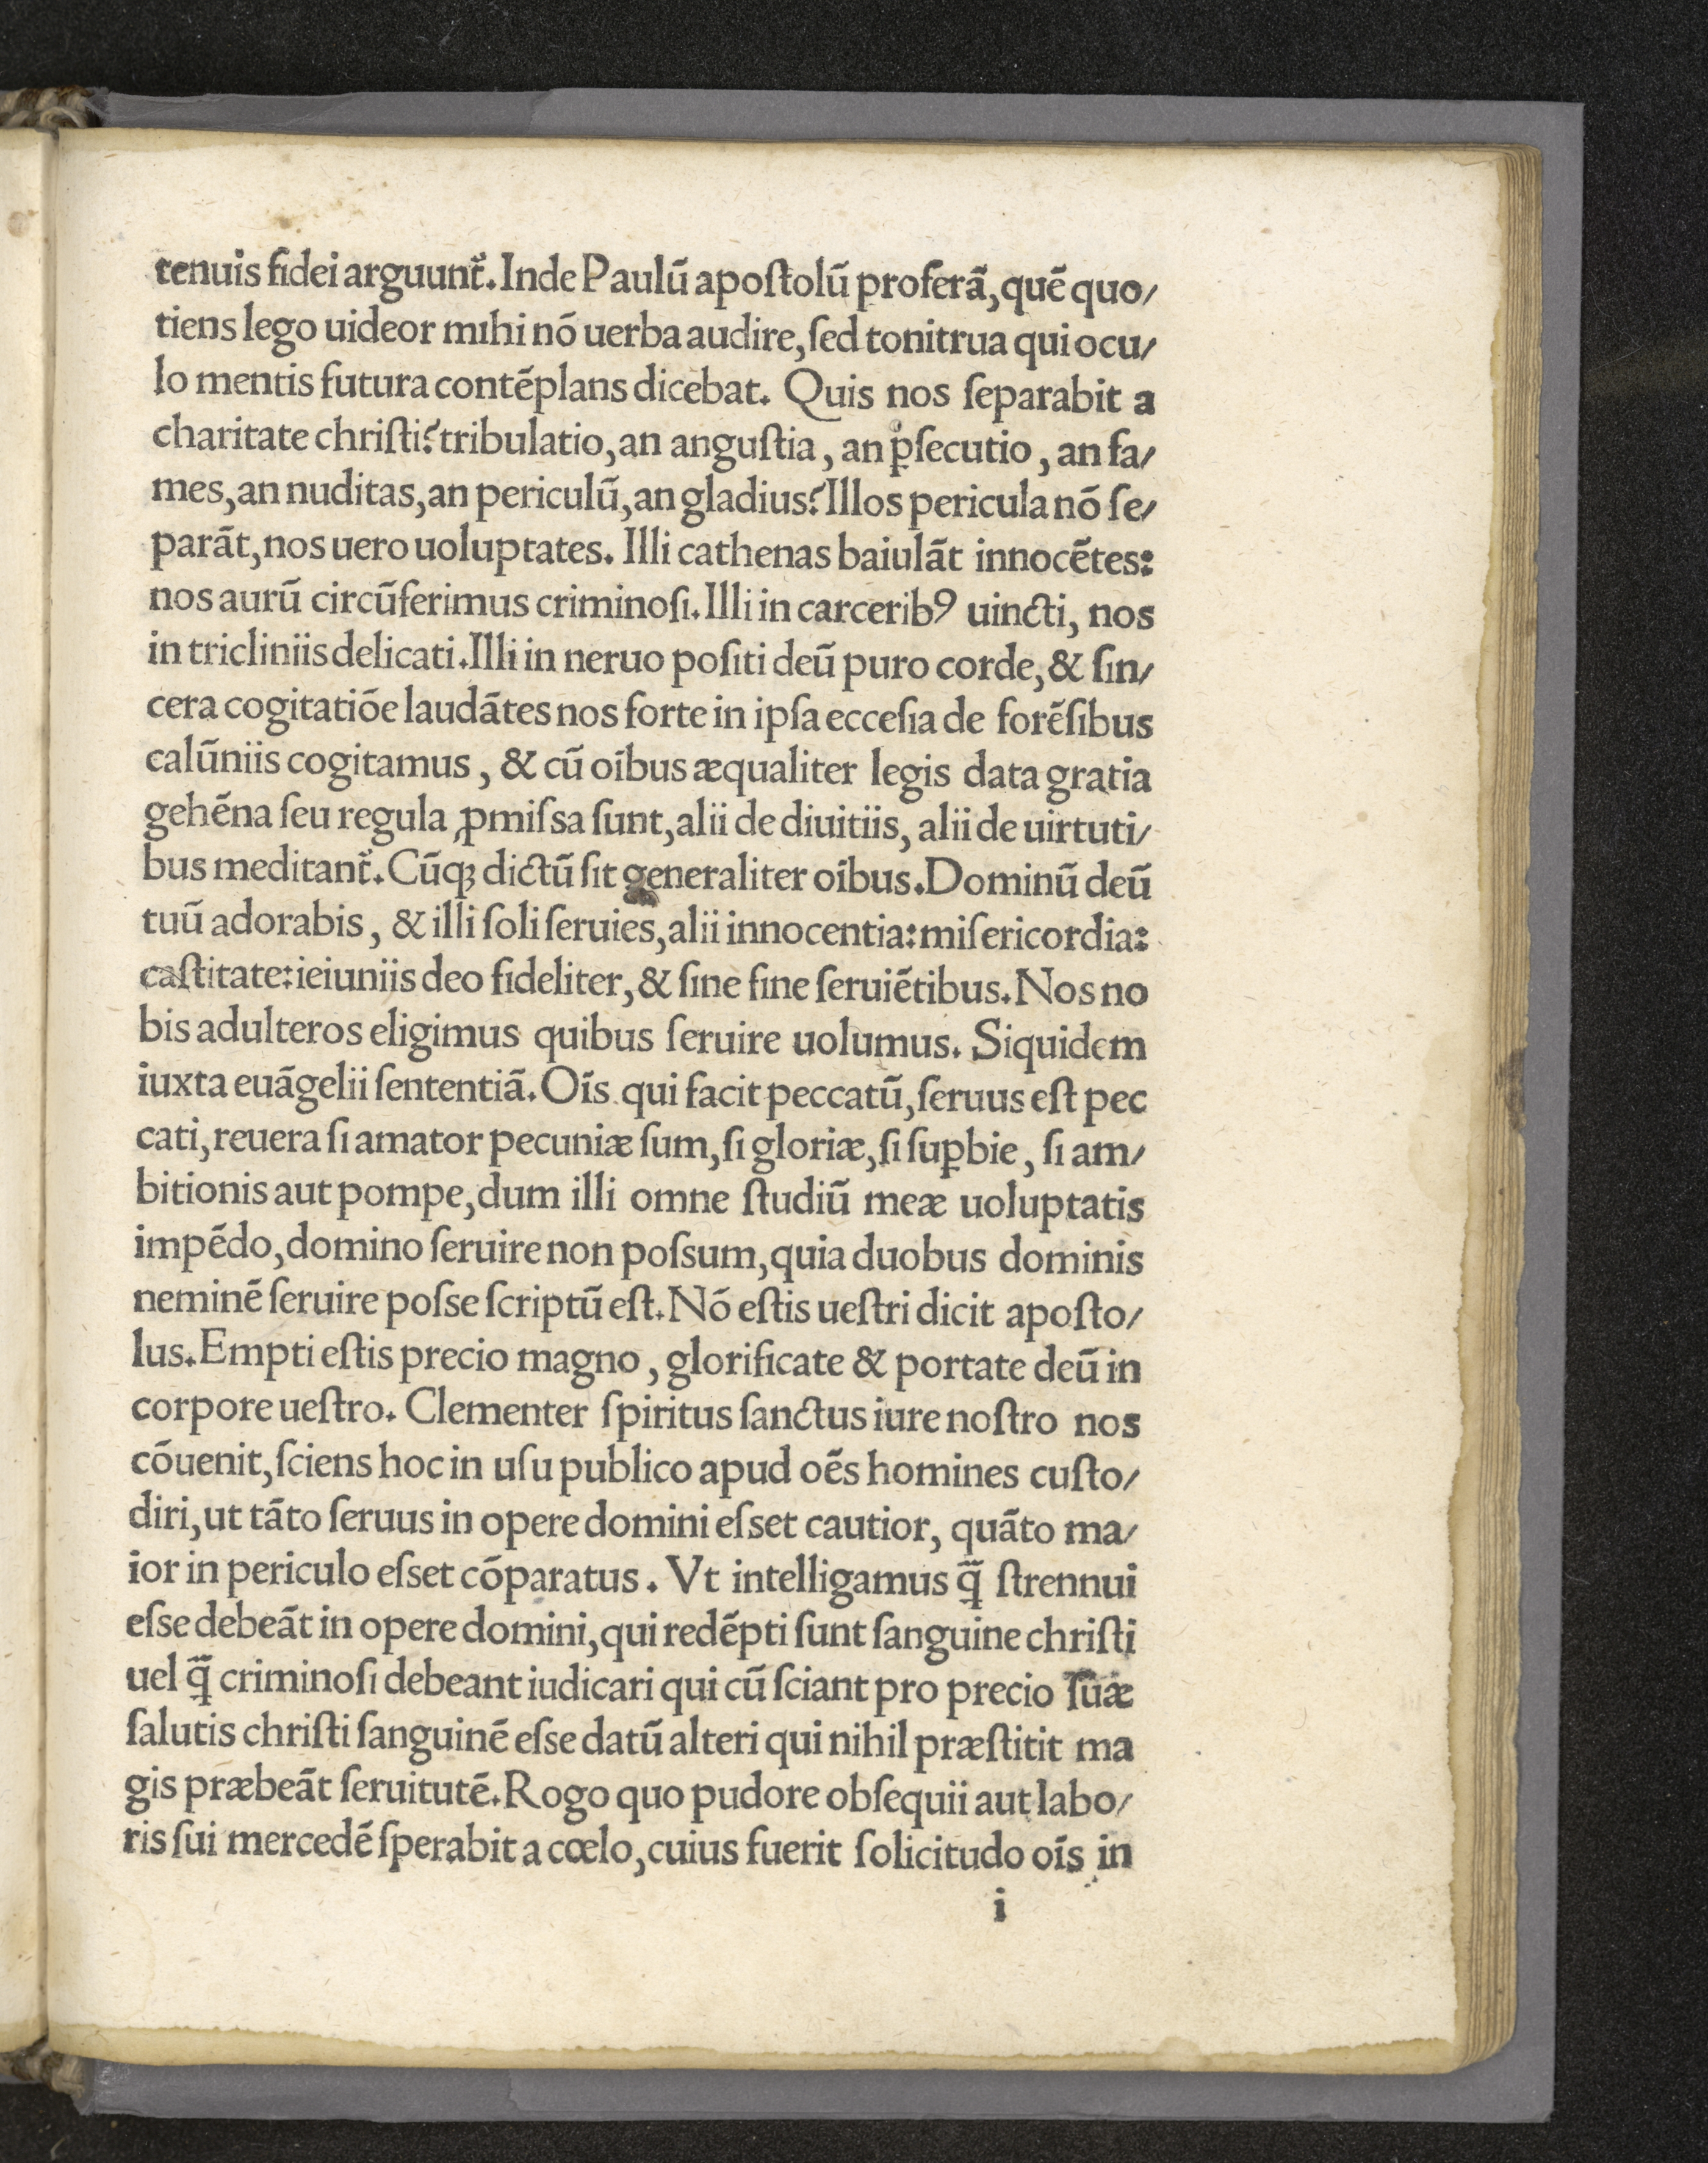 tenuis fidei arguunt̃. Inde Paulũ apoſtolũ proferã, quẽ quo/
tiens lego uideor mihi nõ uerba audire, ſed tonitrua qui ocu/
lo mentis futura contẽplans dicebat. Quis nos ſeparabit a
charitate chriſti? tribulatio, an anguſtia, an ꝑſecutio, an fa/
mes, an nuditas, an periculũ, an gladius? Illos pericula nõ ſe/
parãt, nos uero uoluptates. Illi cathenas baiulãt innocẽtes:
nos aurũ circũferimus criminoſi. Illi in carceribꝰ uincti, nos
in tricliniis delicati. Illi in neruo poſiti deũ puro corde, & ſin/
cera cogitatiõe laudãtes nos forte in ipſa ecceſia de forẽſibus
calũniis cogitamus, & cũ oĩbus æqualiter legis data gratia
gehẽna ſeu regula ꝓmiſsa ſunt, alii de diuitiis, alii de uirtuti/
bus meditant̃. Cũqꝫ dictũ ſit generaliter oĩbus. Dominũ deũ
tuũ adorabis, & illi ſoli ſeruies, alii innocentia: miſericordia:
caſtitate: ieiuniis deo fideliter, & ſine fine ſeruiẽtibus. Nos no
bis adulteros eligimus quibus ſeruire uolumus. Siquidem
iuxta euãgelii ſententiã. Oĩs qui facit peccatũ, ſeruus eſt pec
cati, reuera ſi amator pecuniæ ſum, ſi gloriæ, ſi ſuꝑbie, ſi am/
bitionis aut pompe, dum illi omne ſtudiũ meæ uoluptatis
impẽdo, domino ſeruire non poſsum, quia duobus dominis
neminẽ ſeruire poſse ſcriptũ eſt. Nõ eſtis ueſtri dicit apoſto/
lus. Empti eſtis precio magno, glorificate & portate deũ in
corpore ueſtro. Clementer ſpiritus ſanctus iure noſtro nos
cõuenit, ſciens hoc in uſu publico apud oẽs homines cuſto/
diri, ut tãto ſeruus in opere domini eſset cautior, quãto ma/
ior in periculo eſset cõparatus. Vt intelligamus ꝗ̃ ſtrennui
eſse debeãt in opere domini, qui redẽpti ſunt ſanguine chriſti
uel ꝗ̃ criminoſi debeant iudicari qui cũ ſciant pro precio ſuæ
ſalutis chriſti ſanguinẽ eſse datũ alteri qui nihil præſtitit ma
gis præbeãt ſeruitutẽ. Rogo quo pudore obſequii aut labo/
ris ſui mercedẽ ſperabit a cœlo, cuius fuerit ſolicitudo oĩs in
i